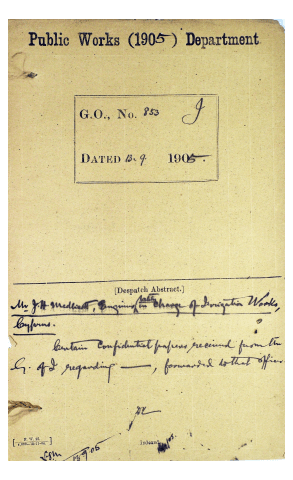 Public Works (1905) Department.
G.O., No. 853 J
DATED 13.9 1905.
[Despatch Abstract.]
Mr J.H. Medlicott, Engineer, lately in Charge of Irrigation Works,
Cyprus.
Certain Confidential papers received from the
G. of I regarding —, forwarded to that officer
Indexed.